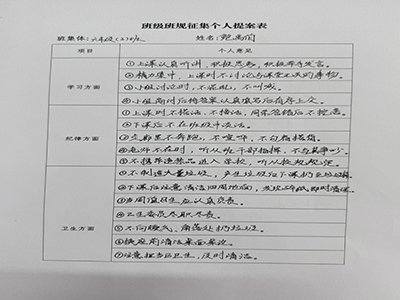 班级班规征集个人提案表
班集体：六年级(2)班 姓名：鲍禹伯
项目 个人意见
学习方面
①上课认真听讲，积极思考，积极举手发言。
②精力集中，上课时不讨论与课堂无关的事物。
③小组讨论时，不
④小组商讨后将答案认真填写后有序上交。
纪律方面
①上课时不搭话，不插话，同学答错后不
②下课后不在班级中
③走廊里不奔跑，不喧哗，不勾肩搭背。
④老师不在时，听从班干部指挥，不与其争吵。
⑤不携带违禁品进入学校，听从校规校纪。
卫生方面
①不制造大量垃圾，产生垃圾后下课扔至垃圾桶。
②下课后注意清洁四周地面，发现碎纸即时清洁。
③当周值日生应认真负责。
④卫生委员尽职尽责。
⑤不向窗外、角落处扔垃圾。
⑥
⑦注意担当区卫生，及时清洁。